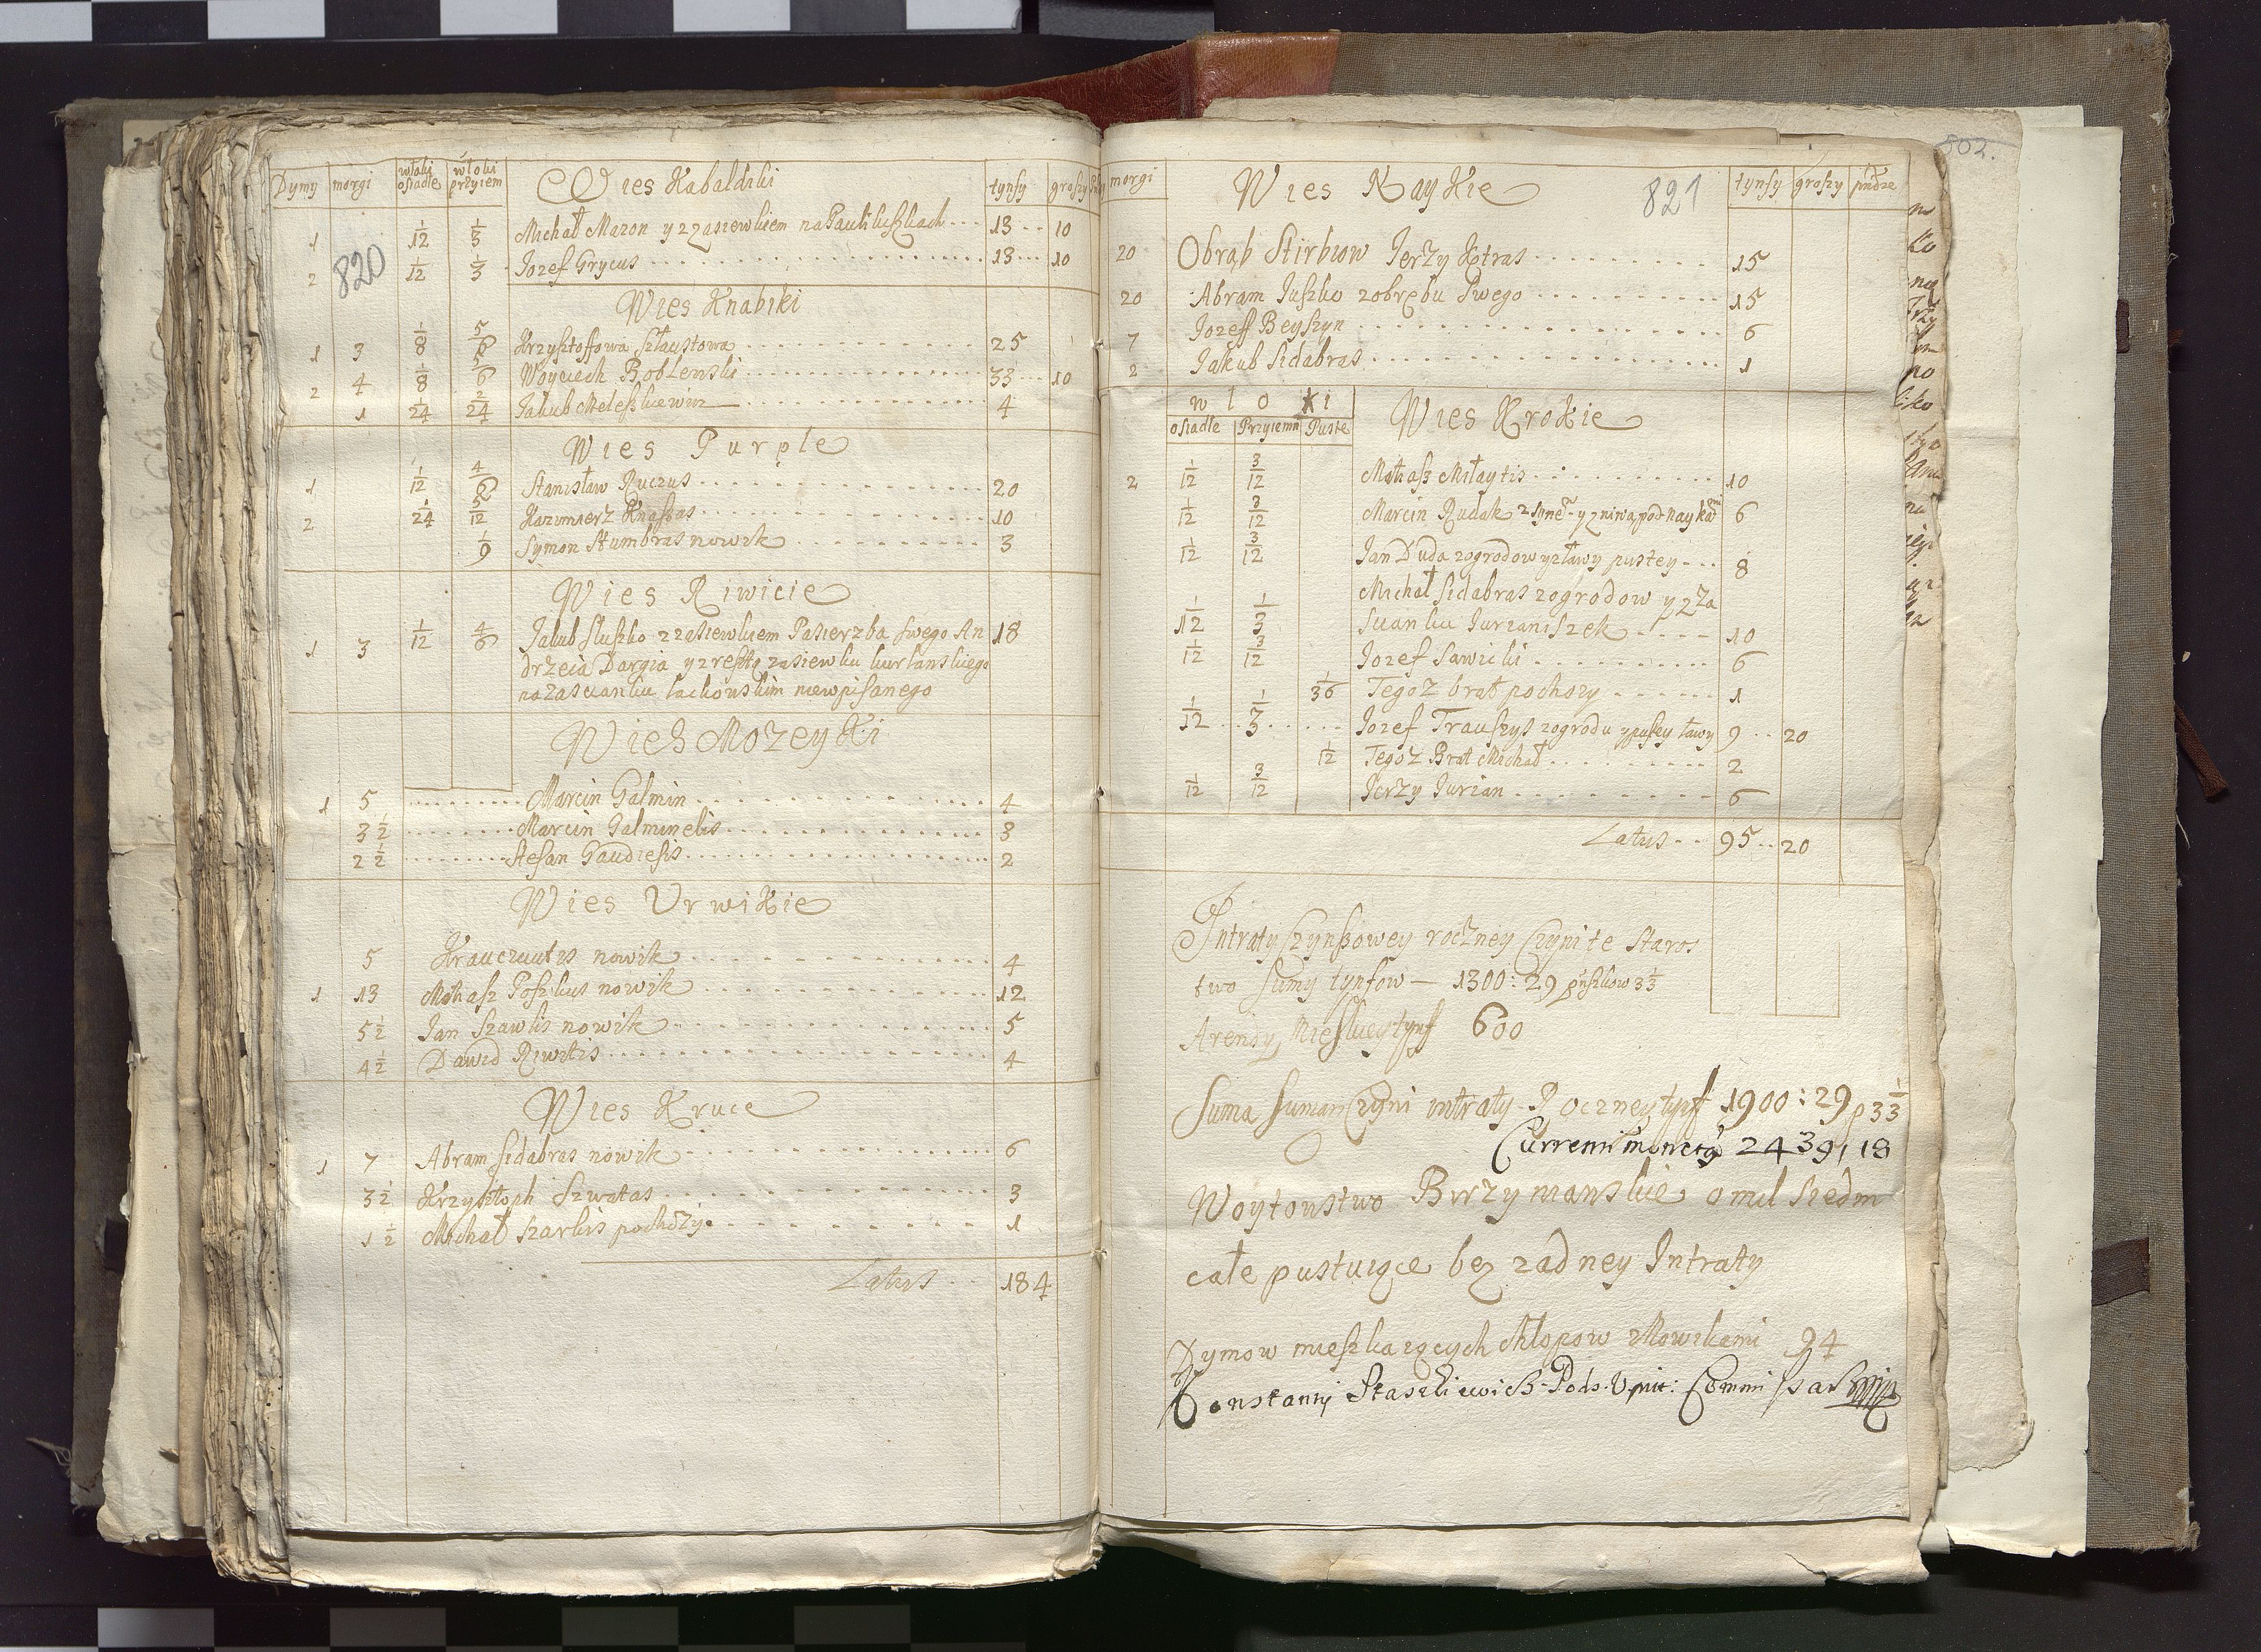 Dymy morgi włoki osiadłe włoki przyiem Wies Kabaldiki tynfy groszy
1 1/12 1/3 Michał Mazon y z zasiewkiem na Pauliluszkach 13 10
820
2 1/12 1/3 Iozef Grycus 13 10
Wies Knabiki
1 3 1/8 5/6 Krzysztoffowa Szlaustowa 25
2 4 1/8 5/6 Woyciech Boblewski 33 10
1 1/24 2/24 Jakub Meleszkiewicz 4
Wies Purple
1 1/12 4/6 Stanisław Ruczus 20
2 1/24 5/12 Kazimierz Knabas 10
1/9 Symon Stumbras nowik 3
Wies Riwicie
1 3 1/12 4/6 Jakub Sluszko z zasiewkiem Pasierzba swego An 18
drzeia Dargia y z resztą zasiewku kurlanskiego
na zascianku lackowskim niewpisanego
Wies Mozeyki
1 5 Marcin Galmin 4
3 1/2 Marcin Galminelis 3
2 1/2 Stefan Gaudiesis 2
Wies Urwikie
5 Krauczuutis nowik 4
1 13 Matiasz Poszkus nowik 12
5 1/2 Jan Szawlis nowik 5
4 1/2 Dawid Riwitis 4
Wies Kruce
1 7 Abram Sidabras nowik 6
3 1/2 Krzysztoph Szwatas 3
1 1/2 Michał Szarlis pochoży 1
Latus 184
802.
morgi Wies Naykie 821 tynfy groszy
20 Obrąb Stirbiow Jerzy Ktras 15
20 Abram Juszko z obrębu swego 15
7 Jozeff Beyszyn 6
2 Jakub Sidabras 1
w l o k i
osiadłe Przyiemn Puste Wies Krokie
2 1/12 3/12 Matiasz Miłaytis 10
1/12 3/12 Marcin Rudak z synem y z niwą pod Naykami 6
1/12 3/12 Jan Duda z ogrodow y z ławy pustey 8
Michał Sidabras z ogrodow y z Za
1/12 1/3 scianku Jurzaniszek 10
1/12 3/12 Jozef Sawicki 6
1/36 Tegoż brat pochoży 1
1/12 1/3 Jozef Trauszys z ogrodu y pustey ławy 9 20
1/12 Tegoż Brat Michał 2
1/12 3/12 Jerzy Jurian 6
Latus 95 20
Intraty Czynszowey roczney Czyni te Staros
two Sumy tynfow — 1300: 29 3 1/3
Arendy tynff 600
Suma Sumar. Czyni intraty Roczney tynff 1900: 29 p 3 1/3
Currenti monetą 2439, 18
Woytowstwo Birzymanskie o mil siedm
całe pustuiące bez zadney Intraty
Dymow mieszkaiących Chłopow z Nowikami 94
Constanty Staszkiewicz Pods. Upit: Commissarz